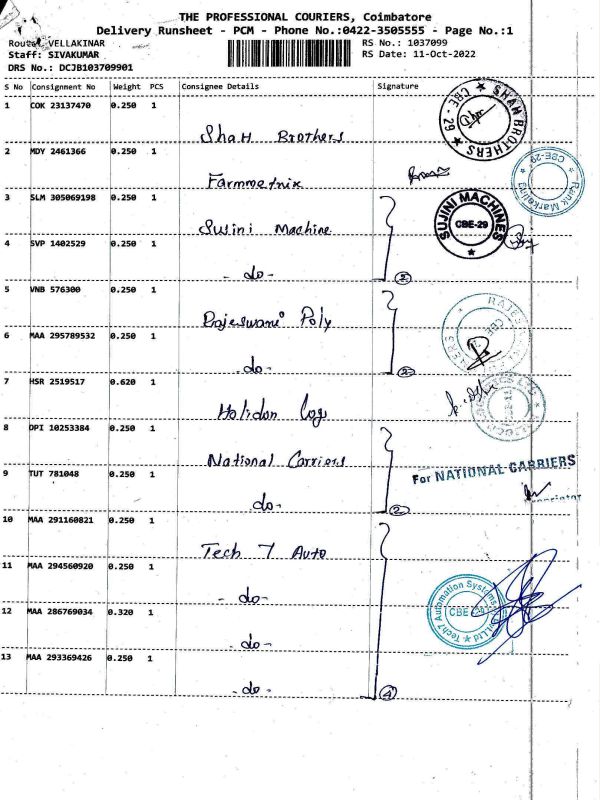 THE PROFESSIONAL COURIERS, Coimbatore
Delivery Runsheet - PCM - Phone No.:0422-3505555 - Page No.:1
Route: VELLAKINAR
RS No.: 1037099
Staff: SIVAKUMAR
RS Date: 11-Oct-2022
DRS No.: DCJB103709901
S No Consignment No Weight PCS Consignee Details Signature
1 COK 23137470 0.250 1
Shah Brothers
SHAH BROTHERS ★ CBE - 29 ★
2 MDY 2461366 0.250 1
Farmmetrix
Rank Marketing CBE-29
3 SLM 305069198 0.250 1
Sujini Machine
SUJINI MACHINES CBE-29 ★
4 SVP 1402529 0.250 1
- do -
2
5 VNB 576300 0.250 1
Rajeswari Poly
6 MAA 295789532 0.250 1
- do -
2
7 HSR 2519517 0.620 1
8 DPI 10253384 0.250 1
National Carriers
For NATIONAL CARRIERS
9 TUT 781048 0.250 1
- do -
2
10 MAA 291160821 0.250 1
Tech 7 Auto
11 MAA 294560920 0.250 1
- do -
Tech7 Automation Systems Pvt Ltd ★ CBE-29
12 MAA 286769034 0.320 1
- do -
13 MAA 293369426 0.250 1
- do -
4